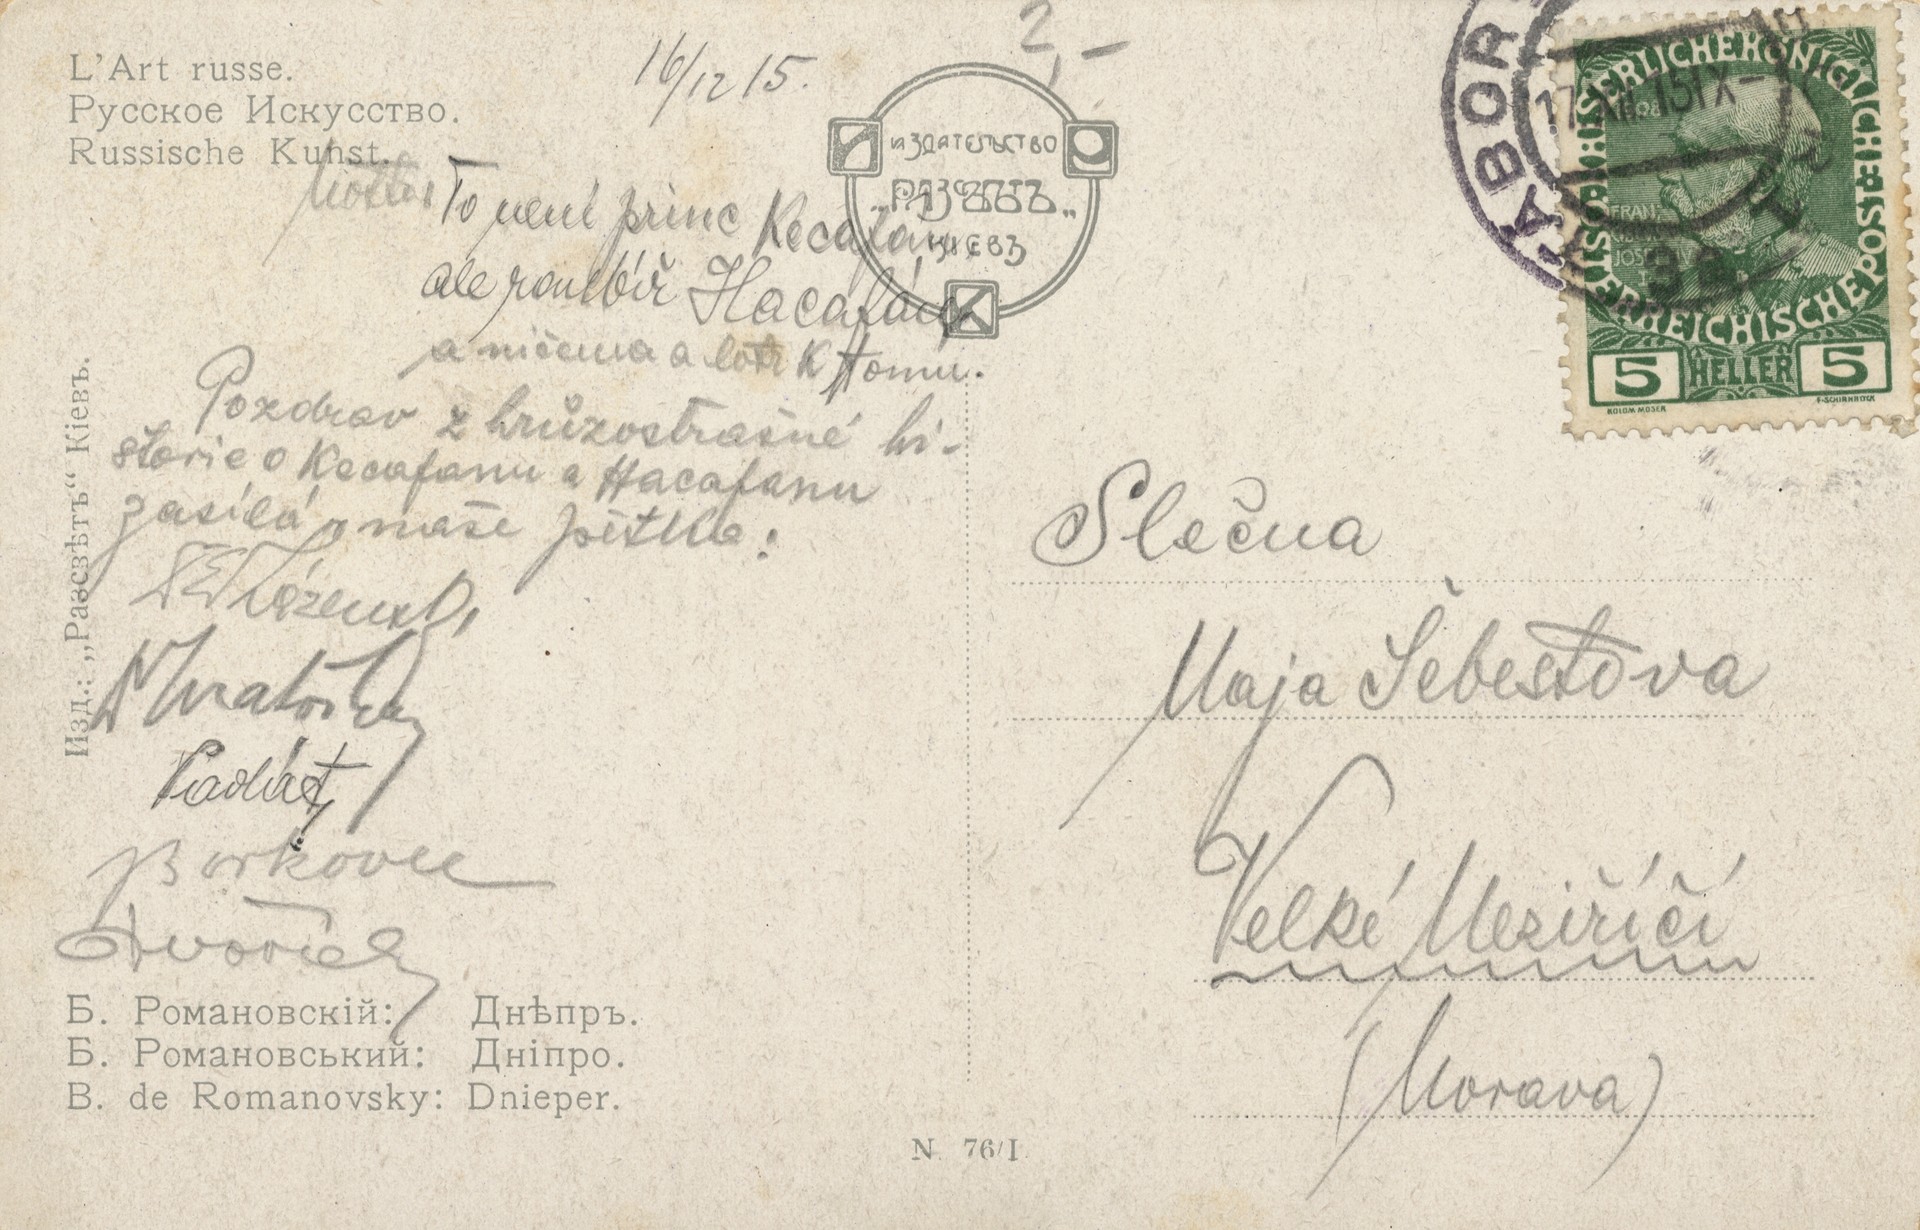 L'Art russe.
Русское Искусство.
Russische Kunst.
16/12 15.
2,-
издательство
„РАЗСВѢТЪ“
КІЕВЪ
Motto:
To není princ Kecafán
ale roubíř Hacafán
a ničema a lotr k tomu.
Pozdrav z hrůzostrašné hi-
storie o Kecafanu a Hacafanu
zasílá „naše pětka:
Borkovec
Dvořák
Изд.: „Разсвѣтъ“ Кіевъ.
Б. Романовскій: Днѣпръ.
Б. Романовський: Дніпро.
B. de Romanovsky: Dnieper.
N 76/I
TÁBOR
17.XII.15 IX-
3B
KAISERLICHE KÖNIGLICHE ÖSTERREICHISCHE POST
1908
FRANZ
JOSEF
5 HELLER 5
KOLOM MOSER
F. SCHIRNBÖCK
Slečna
Maja Šebestova
Velké Meziříčí
(Morava)